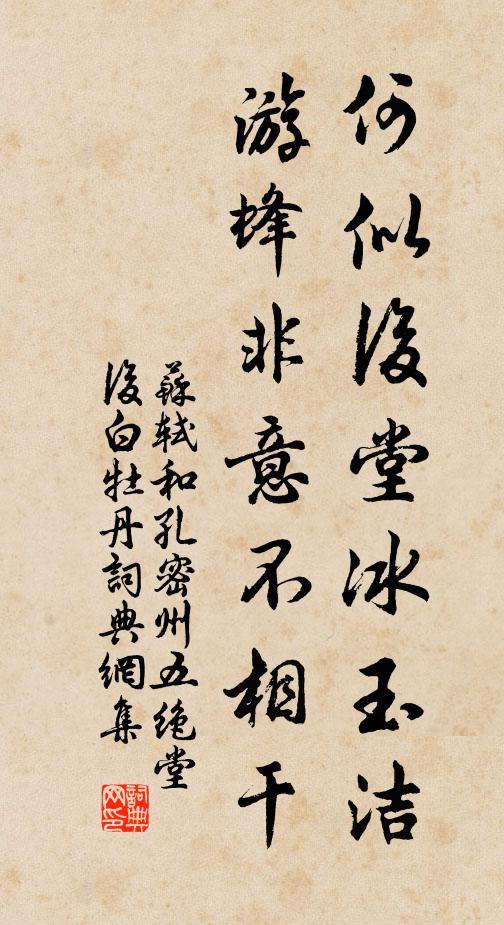 何似後堂冰玉洁
游蜂非意不相干
蘇軾和孔密州五絶堂
後白牡丹詞典網集
詞典
网印